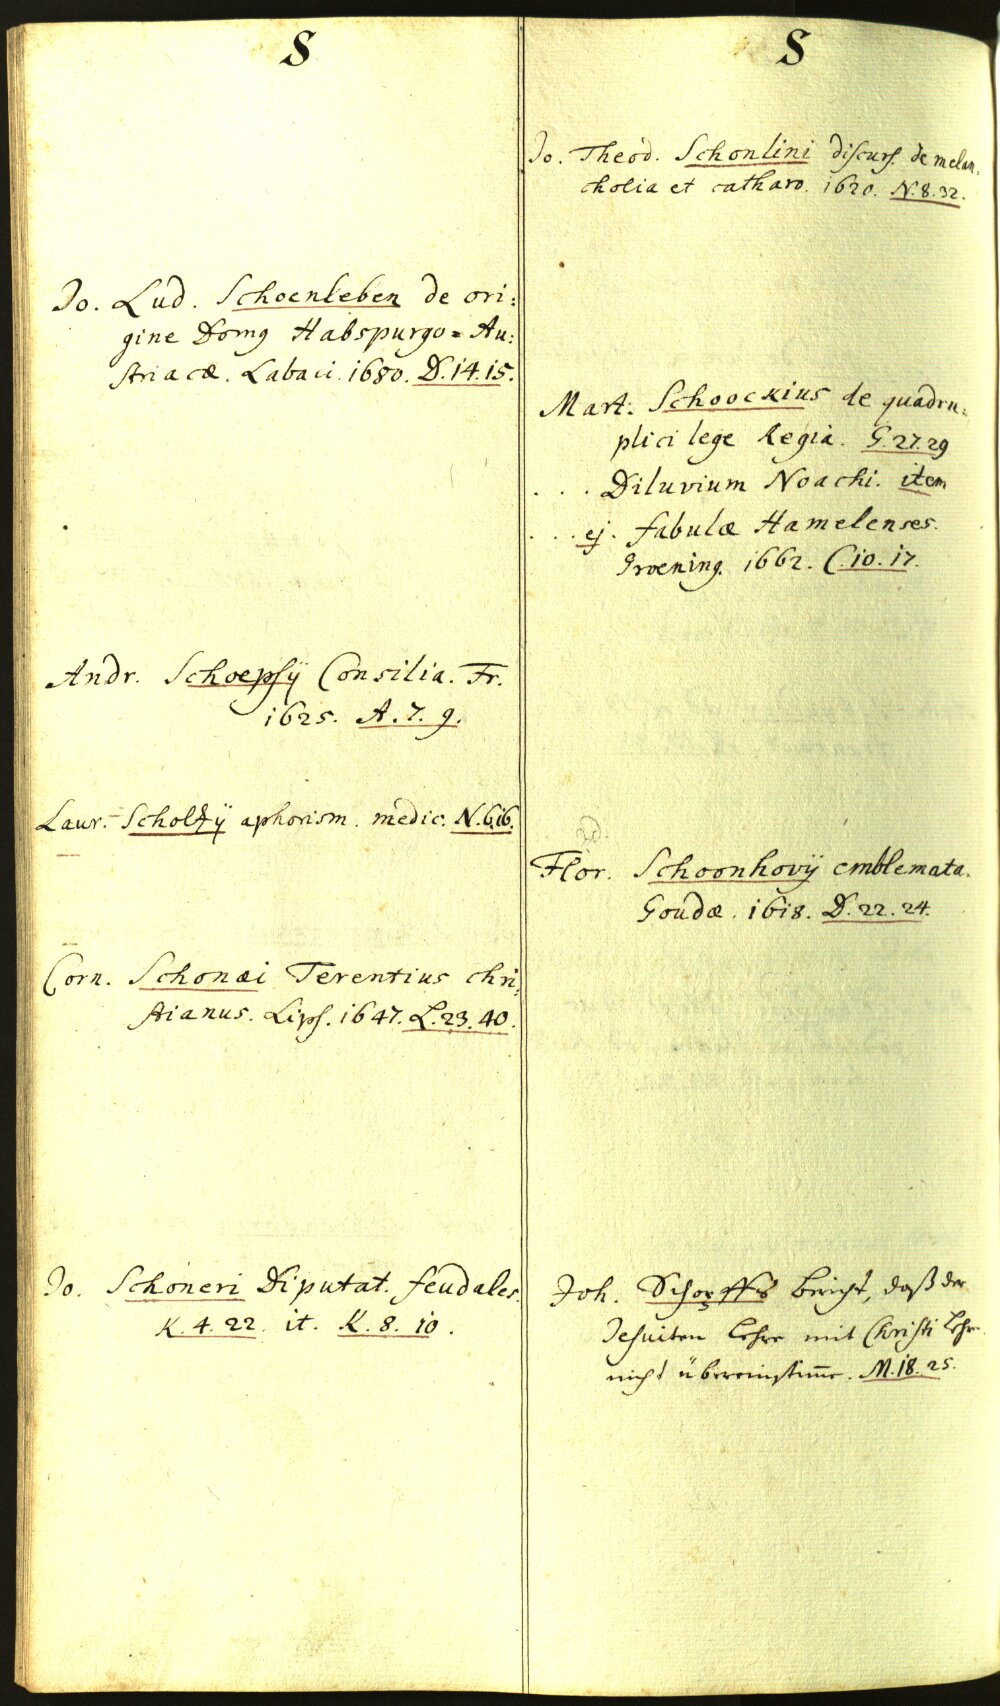 S
Jo. Lud. Schoenleben de ori:
gine Domg Habspurgo=Au:
striacæ. Labaci. 1680. D.14.15.
Andr. Schoepsÿ Consilia. Fr.
1625. A.7.9.
Laur. Scholtzÿ aphorism. medic. N.6.16.
Corn. Schonæi Terentius chri:
stianus. Lips. 1647. L.23.40.
Jo. Schoneri Diputat. feudales.
K.4.22. it. K.8.10.
S
Jo. Theod. Schonlini discurs. de melan:
cholia et catharo. 1620. N.8.32.
Mart. Schoockius de quadru:
plici lege Regia. G.27.29
. . . Diluvium Noachi. item
. . . ej. fabulæ Hamelenses.
Groening. 1662. C.10.17.
Flor. Schoonhovÿ emblemata.
Goudæ. 1618. D.22.24.
Joh. Schopffs bericht, daß der
Jesuiten Lehre mit Christi Lehr
nicht übereinstim̄e. M.18.25.